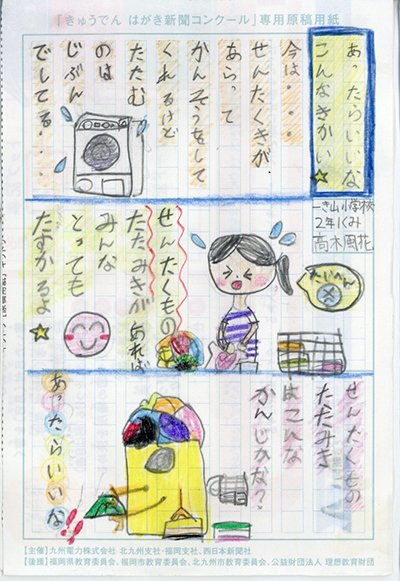 「きゅうでん はがき新聞コンクール」専用原稿用紙
あったらいいな
こんなきかい☆
今は・・・
せんたくきが
あらって
かんそうをして
くれるけど
たたむ
のは
じぶん
でしてる・・・
一き山小学校
2年1くみ
高木風花
たいへん
せんたくもの
たたみきがあれば
みんな
とっても
たすかるよ☆
せんたくもの
たたみき
はこんな
かんじかな?
あったらいいな!!
【主催】九州電力株式会社 北九州支社・福岡支社、西日本新聞社
【後援】福岡県教育委員会、福岡市教育委員会、北九州市教育委員会、公益財団法人 理想教育財団